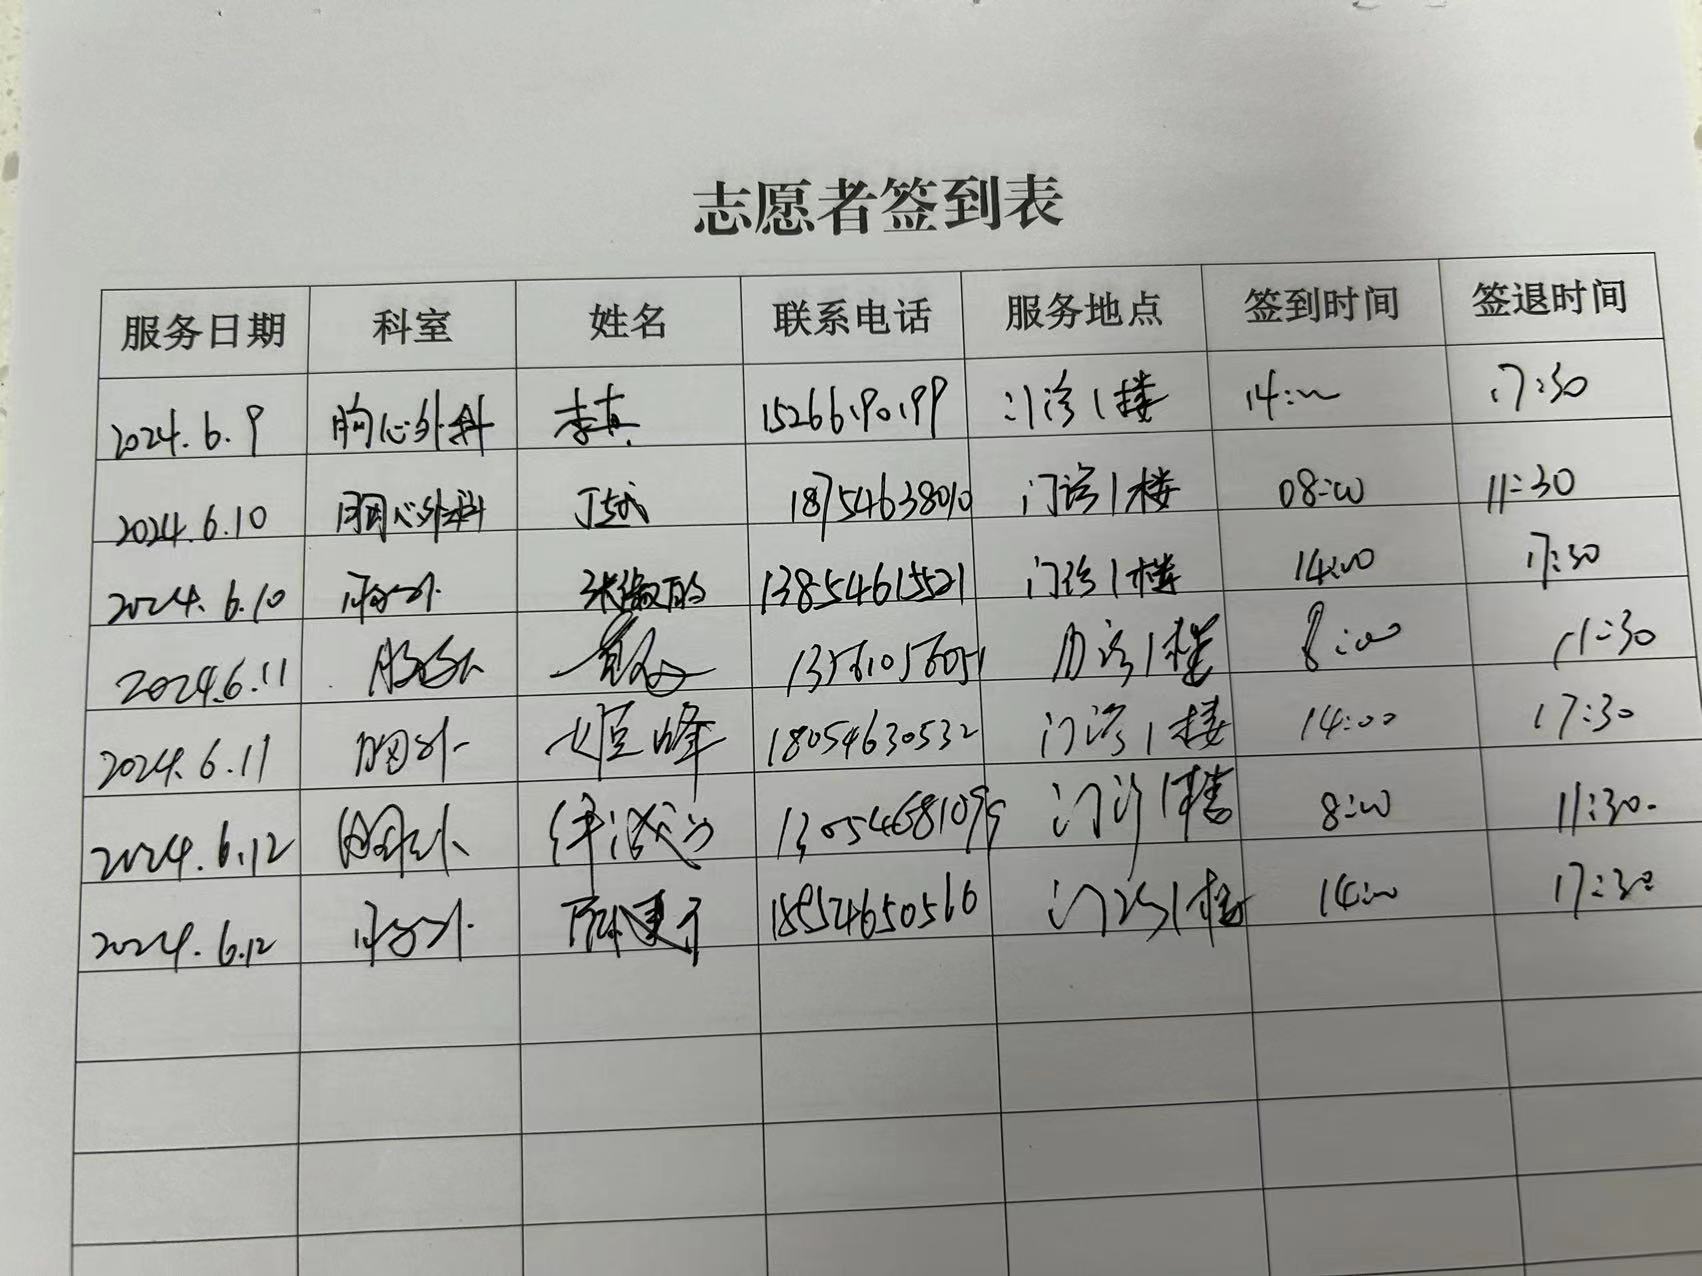 志愿者签到表
服务日期 科室 姓名 联系电话 服务地点 签到时间 签退时间
2024.6.9 胸心外科 李真 15266190199 门诊1楼 14:00 17:30
2024.6.10 胸心外科 丁斌 18754638010 门诊1楼 08:00 11:30
2024.6.10 胸外 13854615521 门诊1楼 14:00 17:30
2024.6.11 胸外 13561056051 门诊1楼 8:00 11:30
2024.6.11 胸外 姬巨峰 18054630532 门诊1楼 14:00 17:30
2024.6.12 胸外 门诊1楼 8:00 11:30
2024.6.12 胸外 18954650566 门诊1楼 14:00 17:30